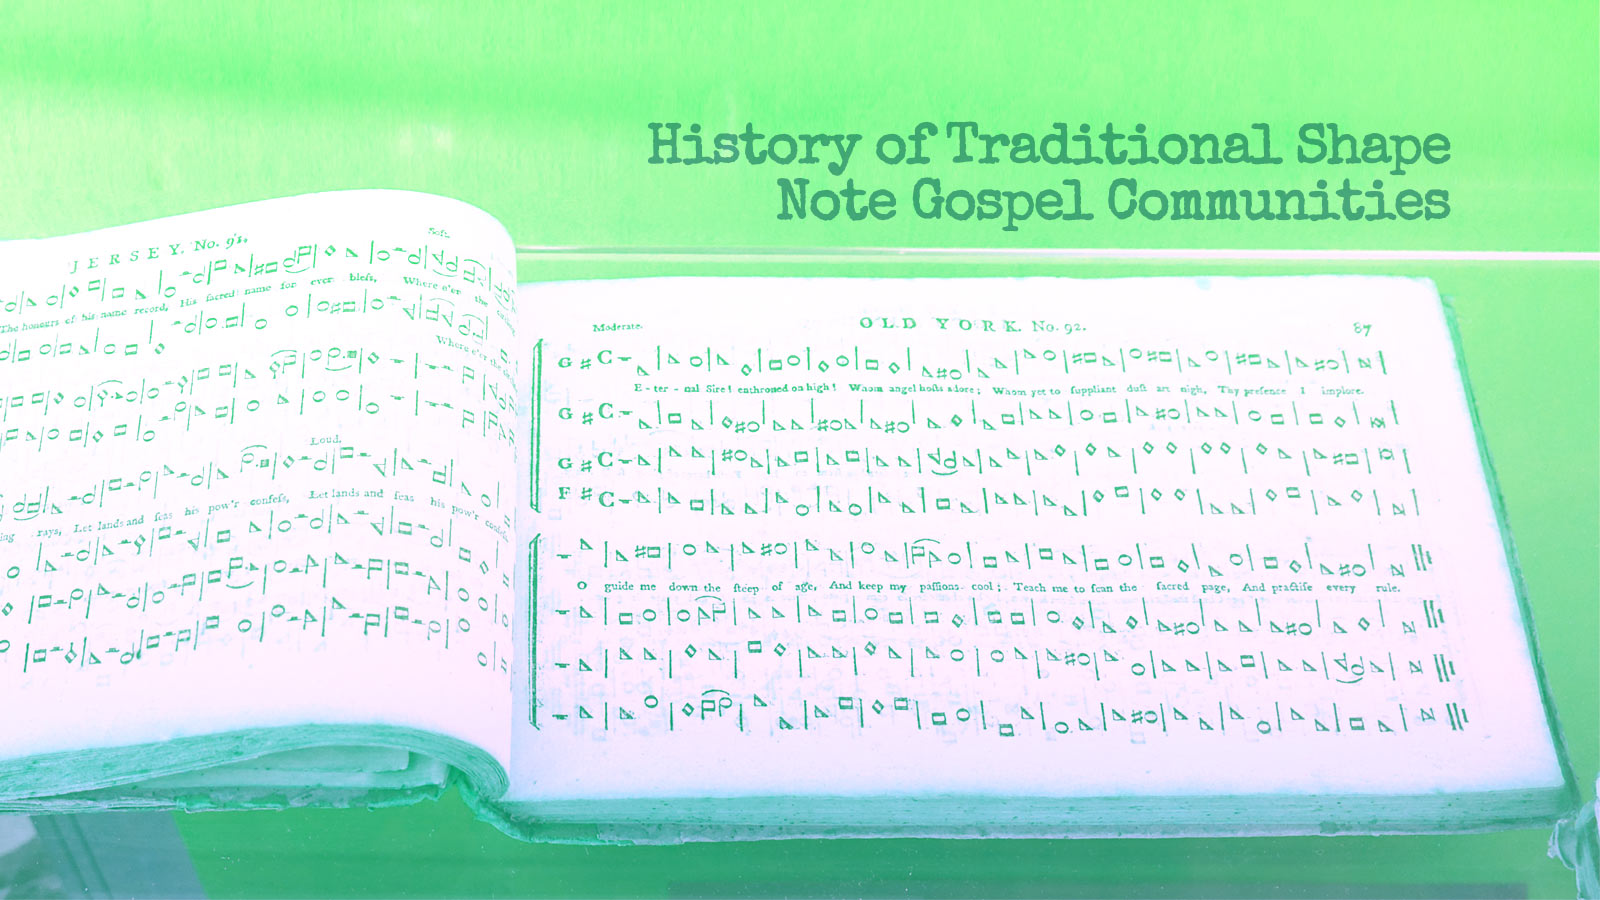 History of Traditional Shape
Note Gospel Communities
JERSEY. No. 91.
Soft.
The honours of his name record, His sacred name for ever bleſs, Where e'er the
Where e'er the
Loud.
rays, Let lands and ſeas his pow'r confeſs, Let lands and ſeas his pow'r confeſs
Moderate.
OLD YORK. No. 92.
87
G # C
E - ter - nal Sire! enthroned on high! Whom angel hoſts adore; Whom yet to ſuppliant duſt art nigh, Thy preſence I implore.
G # C
G # C
F # C
O guide me down the ſteep of age, And keep my paſſions cool; Teach me to ſcan the ſacred page, And practiſe every rule.